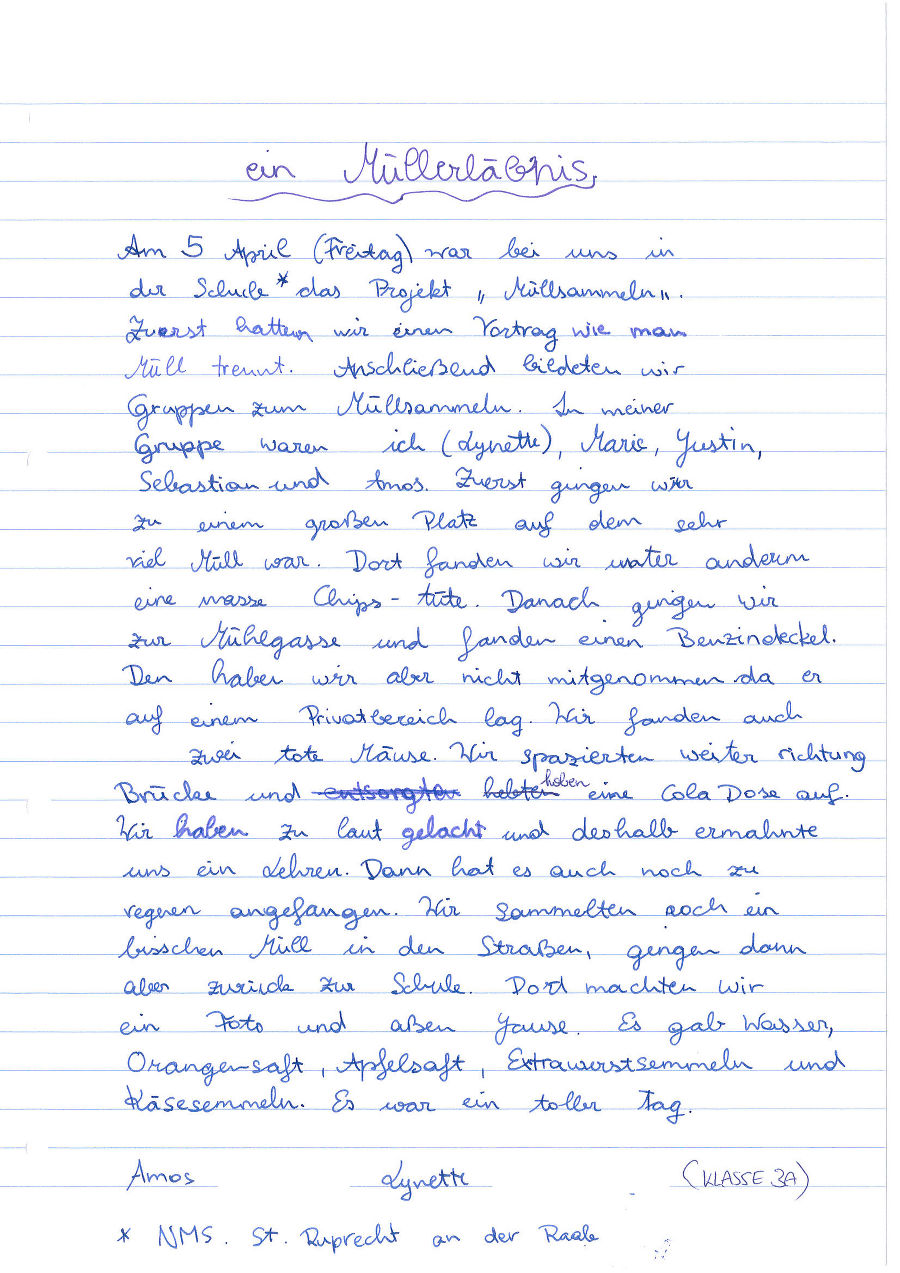 ein Müllerläbnis.
Am 5 April (Freitag) war bei uns in
der Schule * das Projekt „ Müllsammeln„.
Zuerst hatten wir einen Vortrag wie man
Müll trennt. Anschließend bildeten wir
Gruppen zum Müllsammeln. In meiner
Gruppe waren ich (Lynette), Marie, Justin,
Sebastian und Amos. Zuerst gingen wir
zu einem großen Platz auf dem sehr
viel Müll war. Dort fanden wir unter anderem
eine masse Chips-tüte. Danach gingen wir
zur Mühlgasse und fanden einen Benzindeckel.
Den haben wir aber nicht mitgenommen da er
auf einem Privatbereich lag. Wir fanden auch
zwei tote Mäuse. Wir spazierten weiter richtung
Brücke und entsorgten hebten hoben eine Cola Dose auf.
Wir haben zu laut gelacht und deshalb ermahnte
uns ein Lehrer. Dann hat es auch noch zu
regenen angefangen. Wir sammelten noch ein
bisschen Müll in den Straßen, gingen dann
aber zurück zur Schule. Dort machten wir
ein Foto und aßen Jause. Es gab Wasser,
Orangensaft, Apfelsaft, Extrawurstsemmeln und
Käsesemmeln. Es war ein toller Tag.
Amos Lynette (KLASSE 3A)
* NMS. St. Ruprecht an der Raab